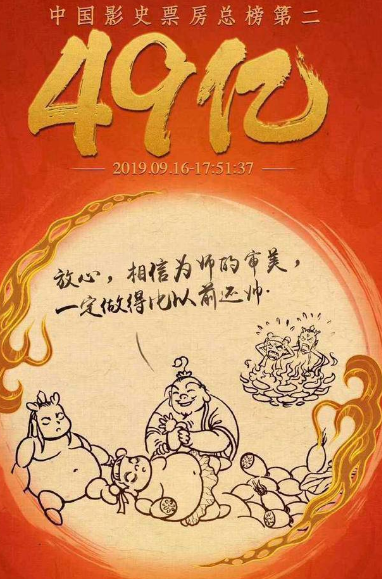 中国影史票房总榜第二
49亿
2019.09.16-17:51:37
放心，相信为师的审美，
一定做得比以前还帅.